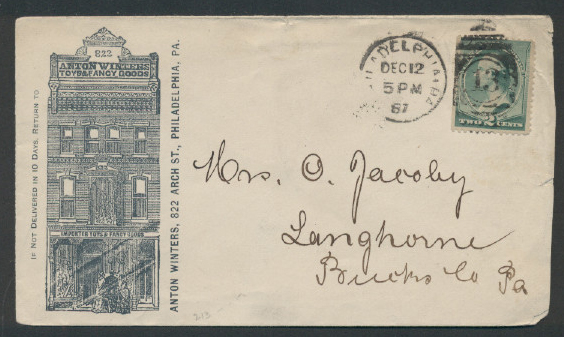 IF NOT DELIVERED IN 10 DAYS, RETURN TO
822
ANTON WINTERS
TOYS & FANCY GOODS
IMPORTED TOYS & FANCY GOODS
ANTON WINTERS, 822 ARCH ST., PHILADELPHIA, PA.
PHILADELPHIA PA
DEC 12
5 PM
87
13
2
TWO CENTS
Mrs. O. Jacoby
Langhorne
Bucks Co Pa
213